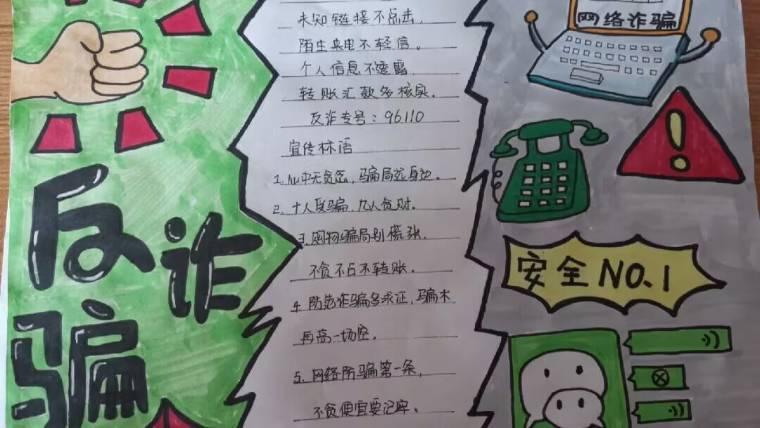 反诈
骗
未知链接不点击,
陌生来电不轻信.
个人信息不透露,
转账汇款多核实.
反诈专号：96110
宣传标语
1.心中无贪,骗局远身边.
2.十人受骗,九人贪财.
3.购物骗局别慌张,
不贪不占不转账.
4.防范诈骗多求证,骗术
再高一场空.
5.网络防骗第一条,
不贪便宜要记牢.
网络诈骗
安全NO.1